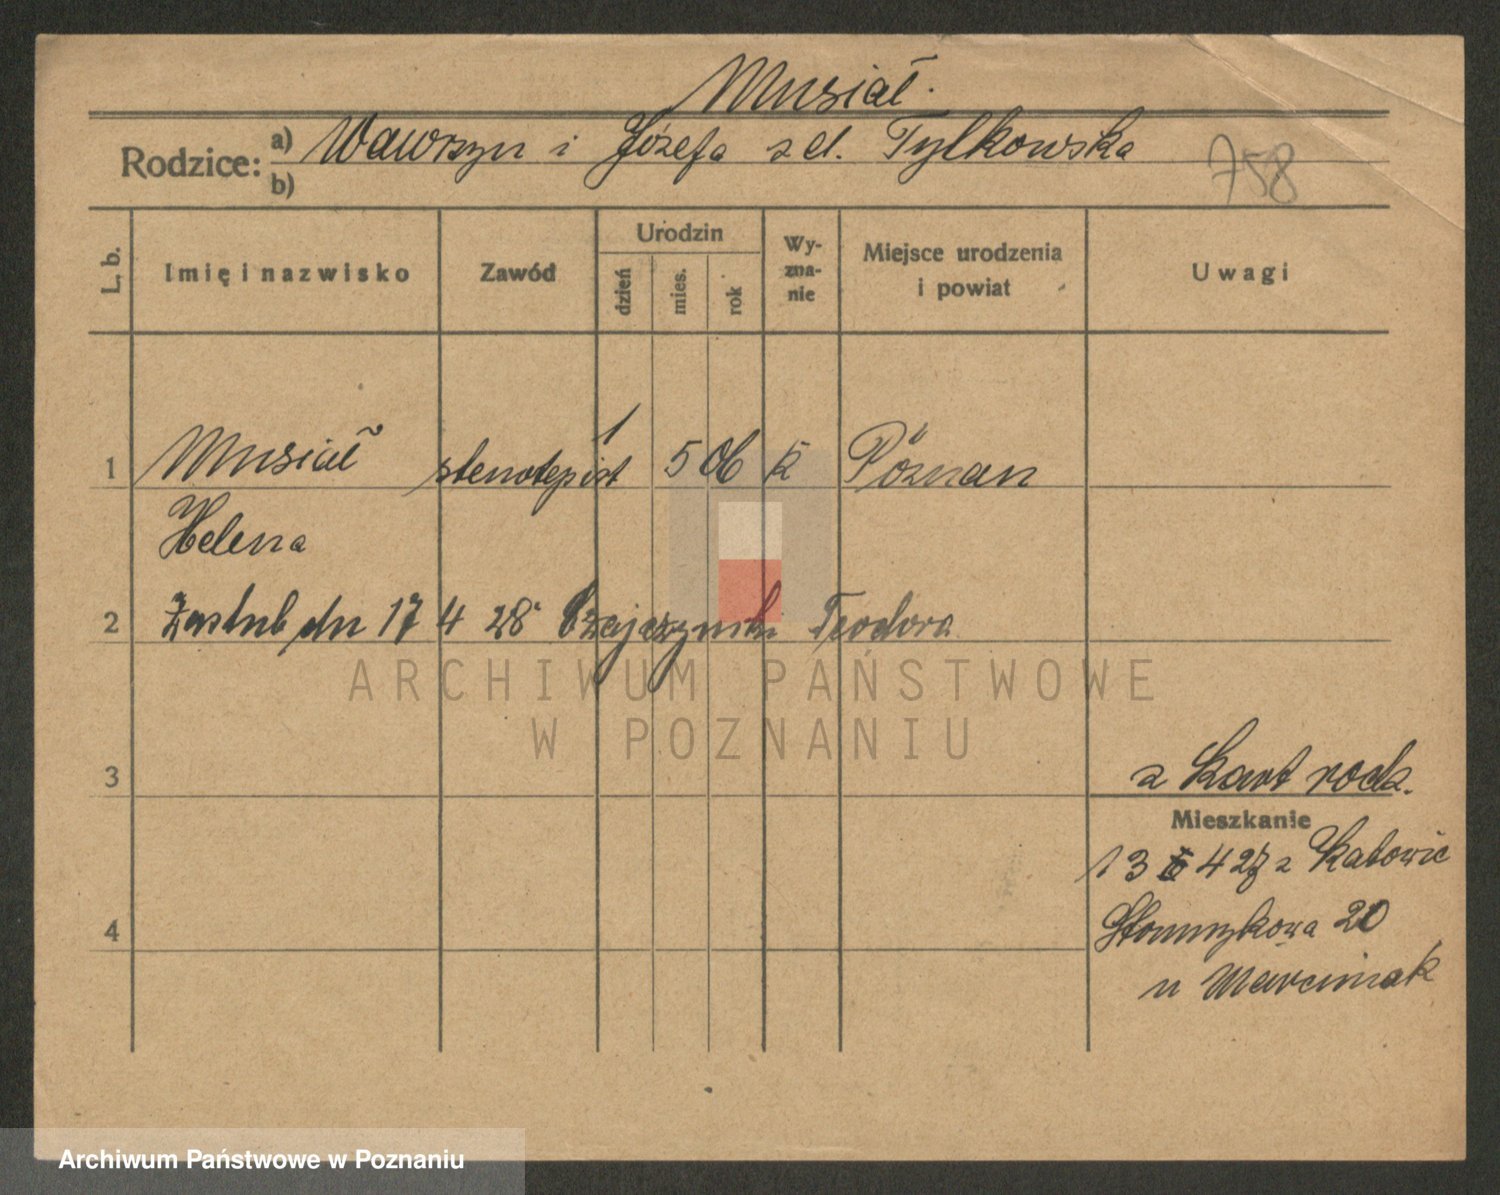 Musiał.
Rodzice: a) Wawrzyn i Józefa z d. Tylkowska
b)
758
L. b.
Imię i nazwisko
Zawód
Urodzin
dzień
mies.
rok
Wy-
zna-
nie
Miejsce urodzenia
i powiat
Uwagi
1 Musiał stenotypist 1 5 06 k Poznan
Helena
2 Zaslub dn 17 4 28 Teodora
ARCHIWUM PAŃSTWOWE
W POZNANIU
3
z Kart rodz.
Mieszkanie
13 4 27 z Katowic
4
20
u Marciniak
Archiwum Państwowe w Poznaniu